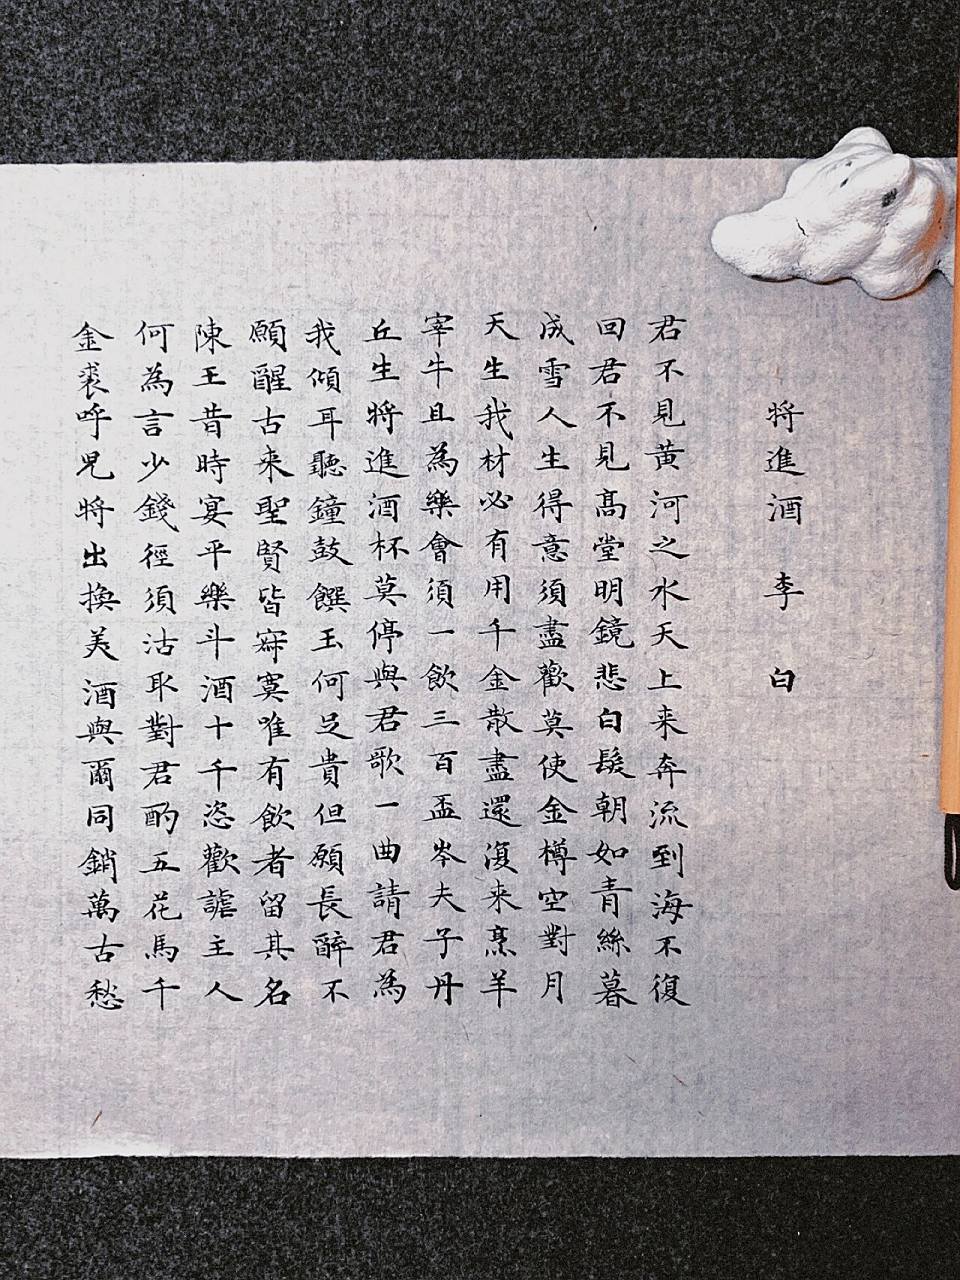 將進酒 李白
君不見黄河之水天上来奔流到海不復
回君不見髙堂明鏡悲白髮朝如青絲暮
成雪人生得意須盡歡莫使金樽空對月
天生我材必有用千金散盡還復来烹羊
宰牛且為樂會須一飲三百盃岑夫子丹
丘生將進酒杯莫停與君歌一曲請君為
我傾耳聽鐘鼓饌玉何足貴但願長醉不
願醒古来聖賢皆寂寞唯有飲者留其名
陳王昔時宴平樂斗酒十千恣歡謔主人
何為言少錢徑須沽取對君酌五花馬千
金裘呼児將出換美酒與爾同銷萬古愁